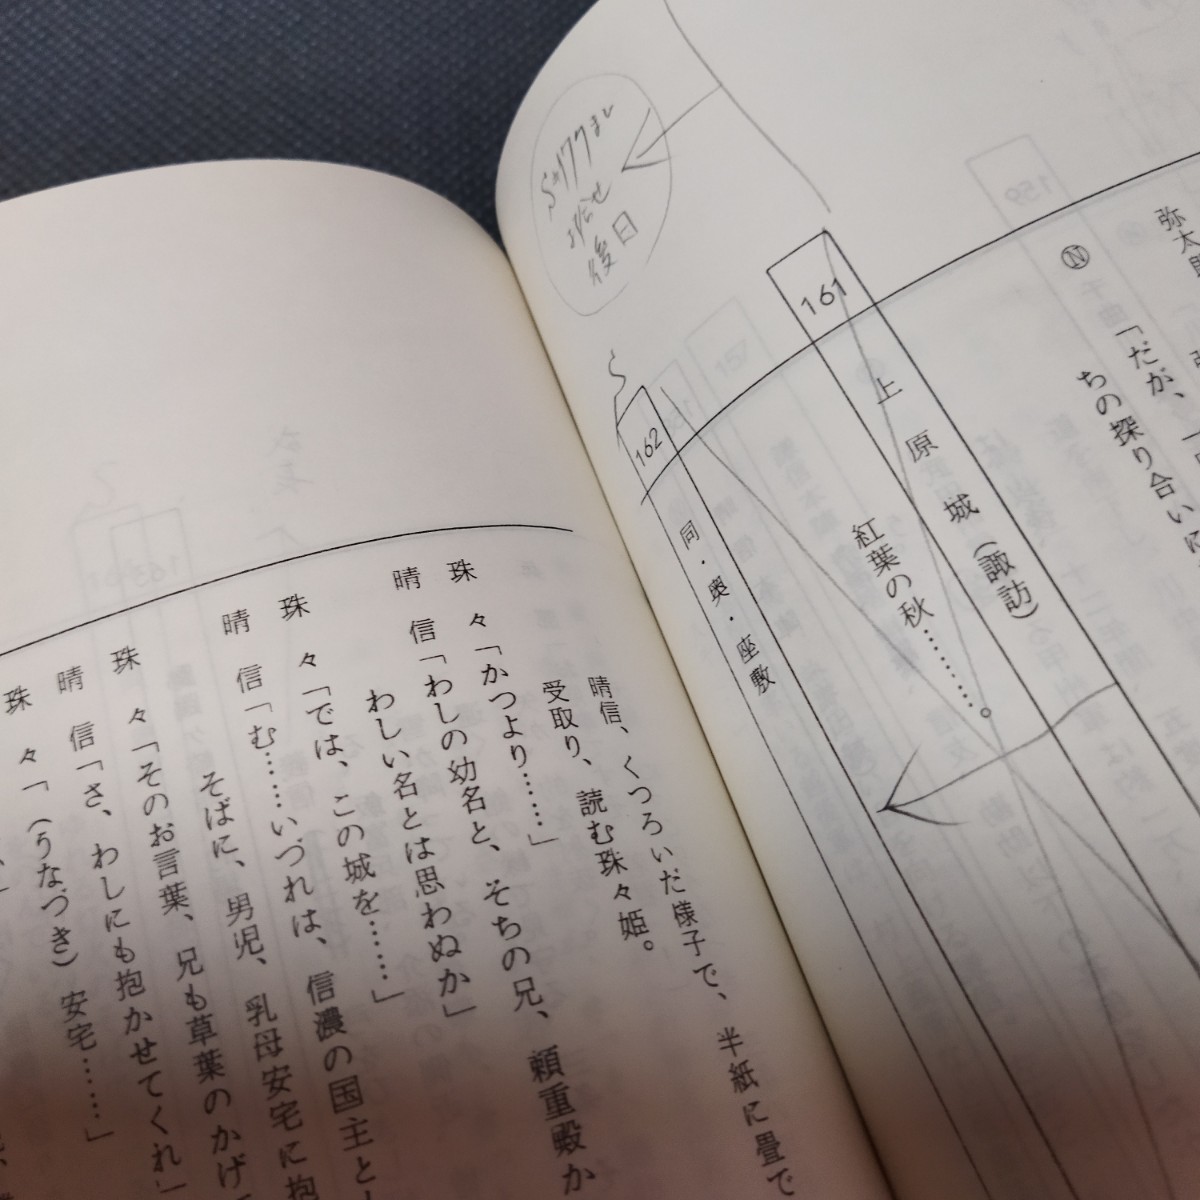 弥太郎
Ⓝ「だが、
ちの探り合いに
161
上原城（諏訪）
紅葉の秋………。
162
同・奥・座敷
後日
晴信、くつろいだ様子で、半紙に畳で
受取り、読む珠々姫。
珠々「かつより……」
晴信「わしの幼名と、そちの兄、頼重殿か
わしい名とは思わぬか」
珠々「では、この城を……」
晴信「む……いづれは、信濃の国主と
そばに、男児、乳母安宅に抱
珠々「そのお言葉、兄も草葉のかげ
晴信「さ、わしにも抱かせてくれ」
珠々「（うなづき）安宅……」